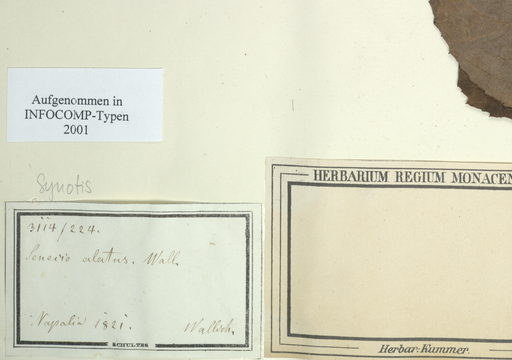 Aufgenommen in
INFOCOMP-Typen
2001
Synotis
HERBARIUM REGIUM MONACEN
3114/224.
Senecio alatus. Wall.
Napalia 1821. Wallich.
SCHULTES
Herbar. Kummer.